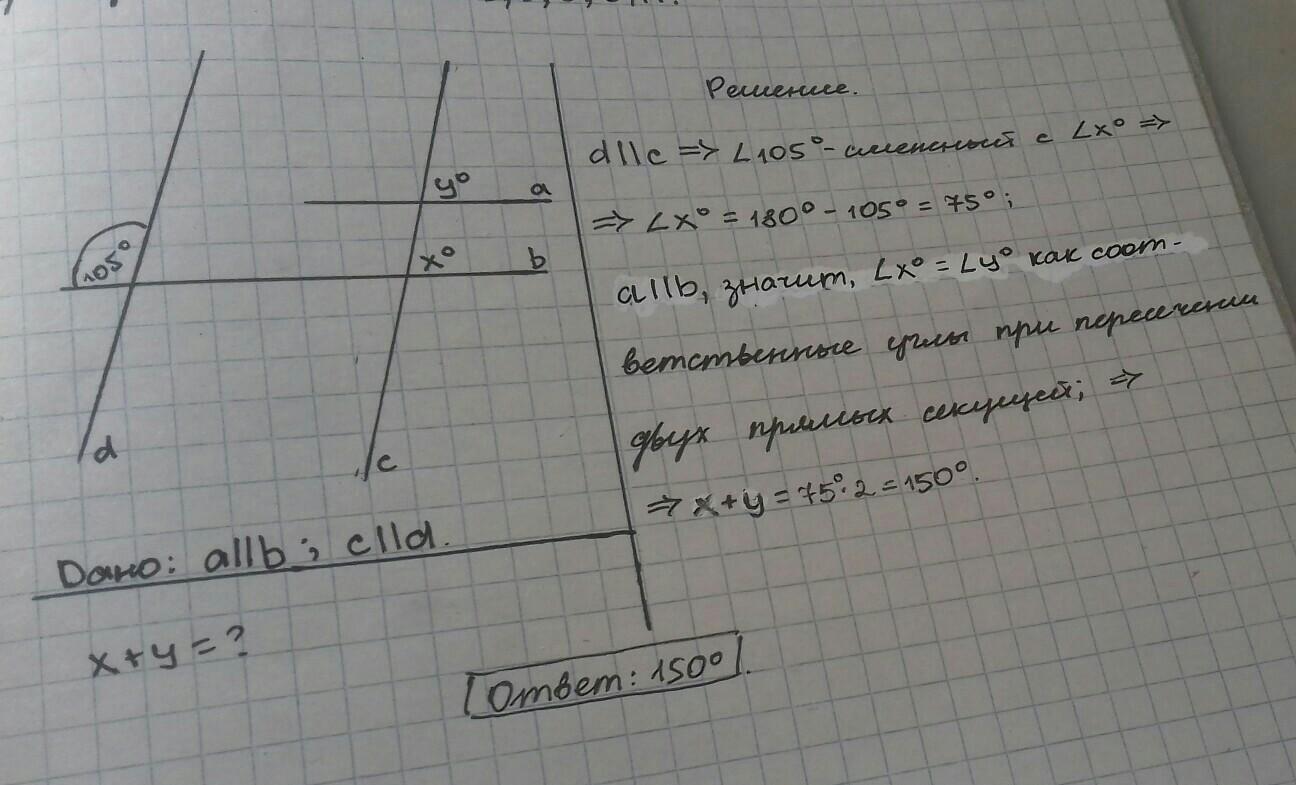 Решение.
d||c => ∠105° - смежный с ∠x° =>
=> ∠x° = 180° - 105° = 75°;
a||b, значит, ∠x° = ∠y° как соот-
ветственные углы при пересечении
двух прямых секущей; =>
=> x + y = 75°·2 = 150°.
y° a
105° x° b
d c
Дано: a||b ; c||d.
x + y = ?
Ответ: 150°.